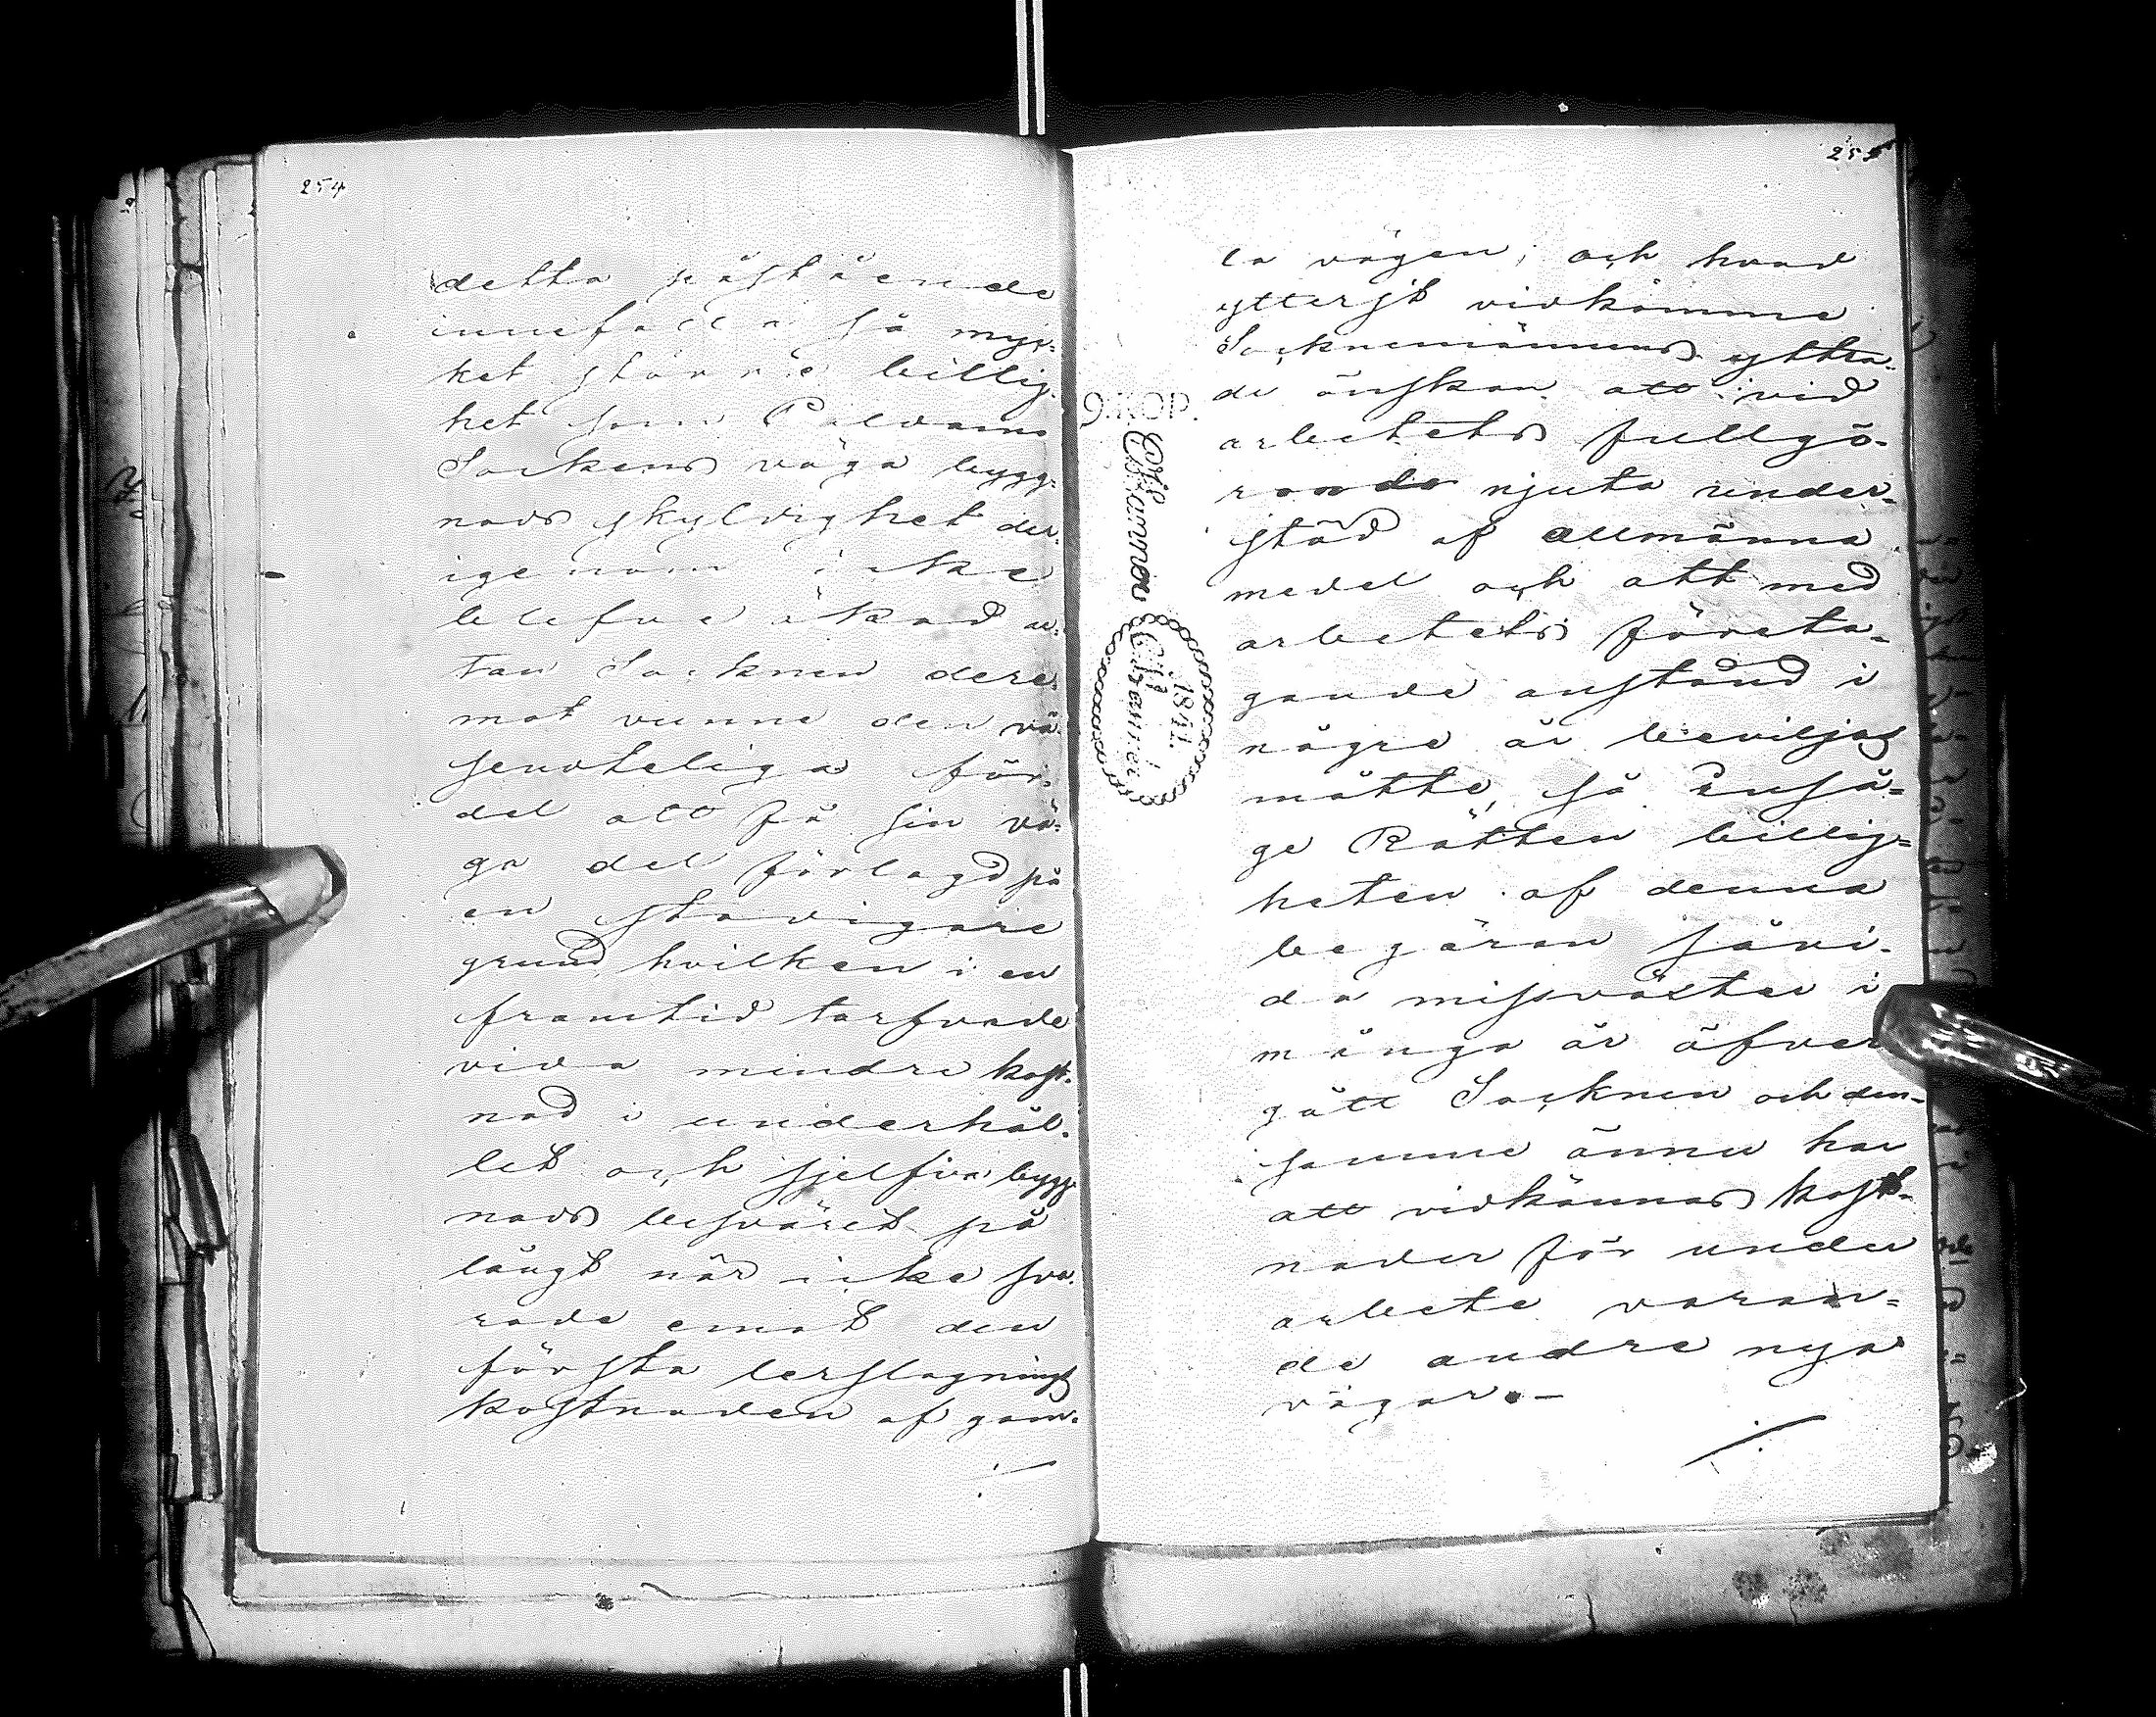 254
detta påstående
innefalla så myc-
ket större billig-
het som Paldamo
Sockens väga bygg-
nads skyldighet der-
igenom icke
blefve ökad u-
tan Socknen dere-
mot vunne den vä-
sendteliga för-
del att få sin vä-
ga del förlagd på
en stadigare
grund, hvilken i en
framtid tarfvade
vida mindre kost-
nad i underhål-
let och sjelfva bygg-
nads besväret på
långt när icke sva-
rade emot den
första lerslagnings
kostnaden af gam-
255
la vägen; och hvad
ytterst vidkomme
Socknemännens yttra-
de önskan att vid
arbetets fullgö-
rande njuta under-
stöd af allmänna
medel och att med
arbetets företa-
gande anstånd i
någre år beviljas
måtte, så Inså-
ge Rätten billig-
heten af denna
begäran såvi-
da missväxter i
många år öfver
gått Socknen och den-
samme ännu har
att vidkännas kost-
nader för under
arbete varan-
de andre nya
vägar.—
9. KOP.
Charta
1841.